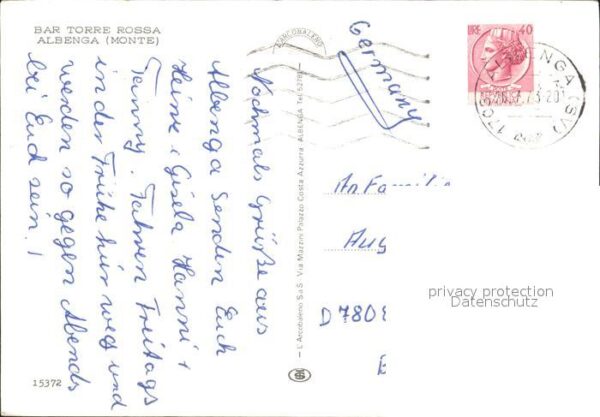 BAR TORRE ROSSA
ALBENGA (MONTE)
Nochmals Grüße aus
Albenga senden Euch
Heinz + Gisela. Hanni +
Fahren Freitags
in der Frühe hier weg und
werden so gegen Abends
bei Euch sein!
15372
— L'Arcobaleno S.a.S. Via Mazzini Palazzo Costa Azzurra ALBENGA Tel.
Germany
LIRE 40
ALBENGA (SV)
An Familie
Aug
D 780
privacy protection
Datenschutz